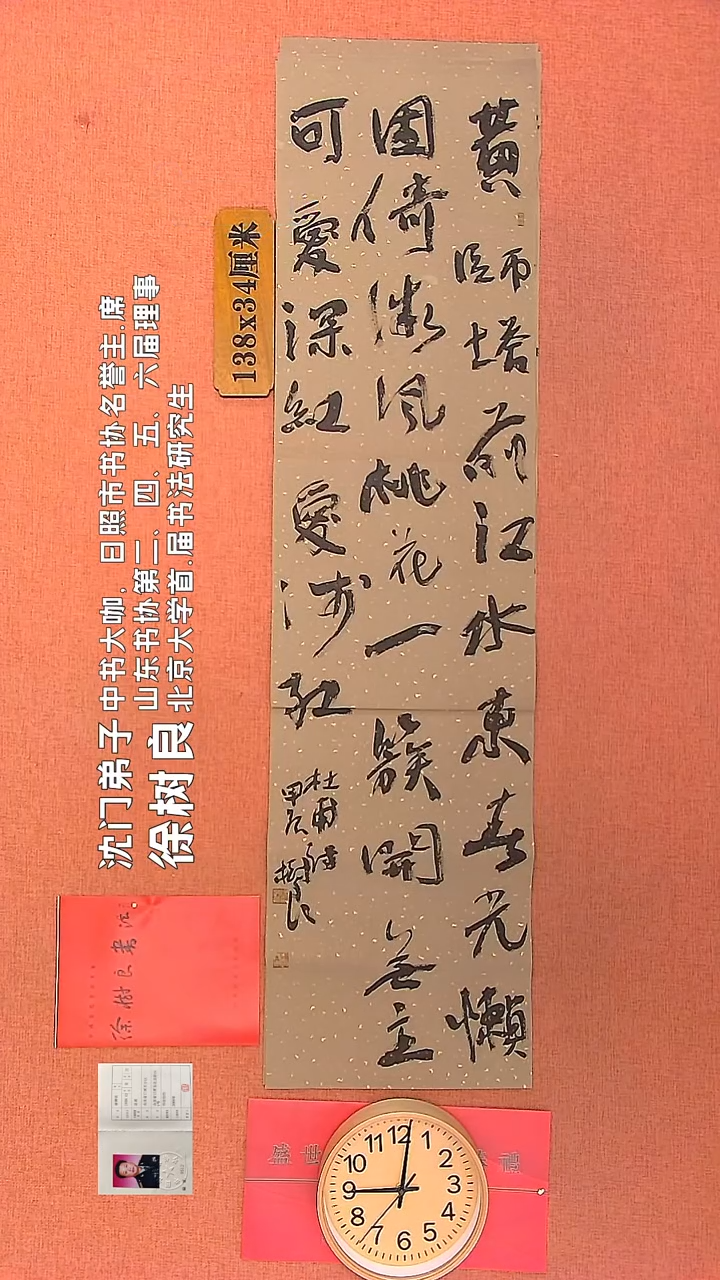 黃師塔前江水東春光懶
困倚微風桃花一簇開無主
可愛深紅愛淺紅
杜甫詩
甲辰樹良
138x34厘米
沈门弟子 中书大咖，日照市书协名誉主席
徐树良 山东书协第三、四、五、六届理事
北京大学首届书法研究生
徐樹良
12
1
2
3
4
5
6
7
8
9
10
11